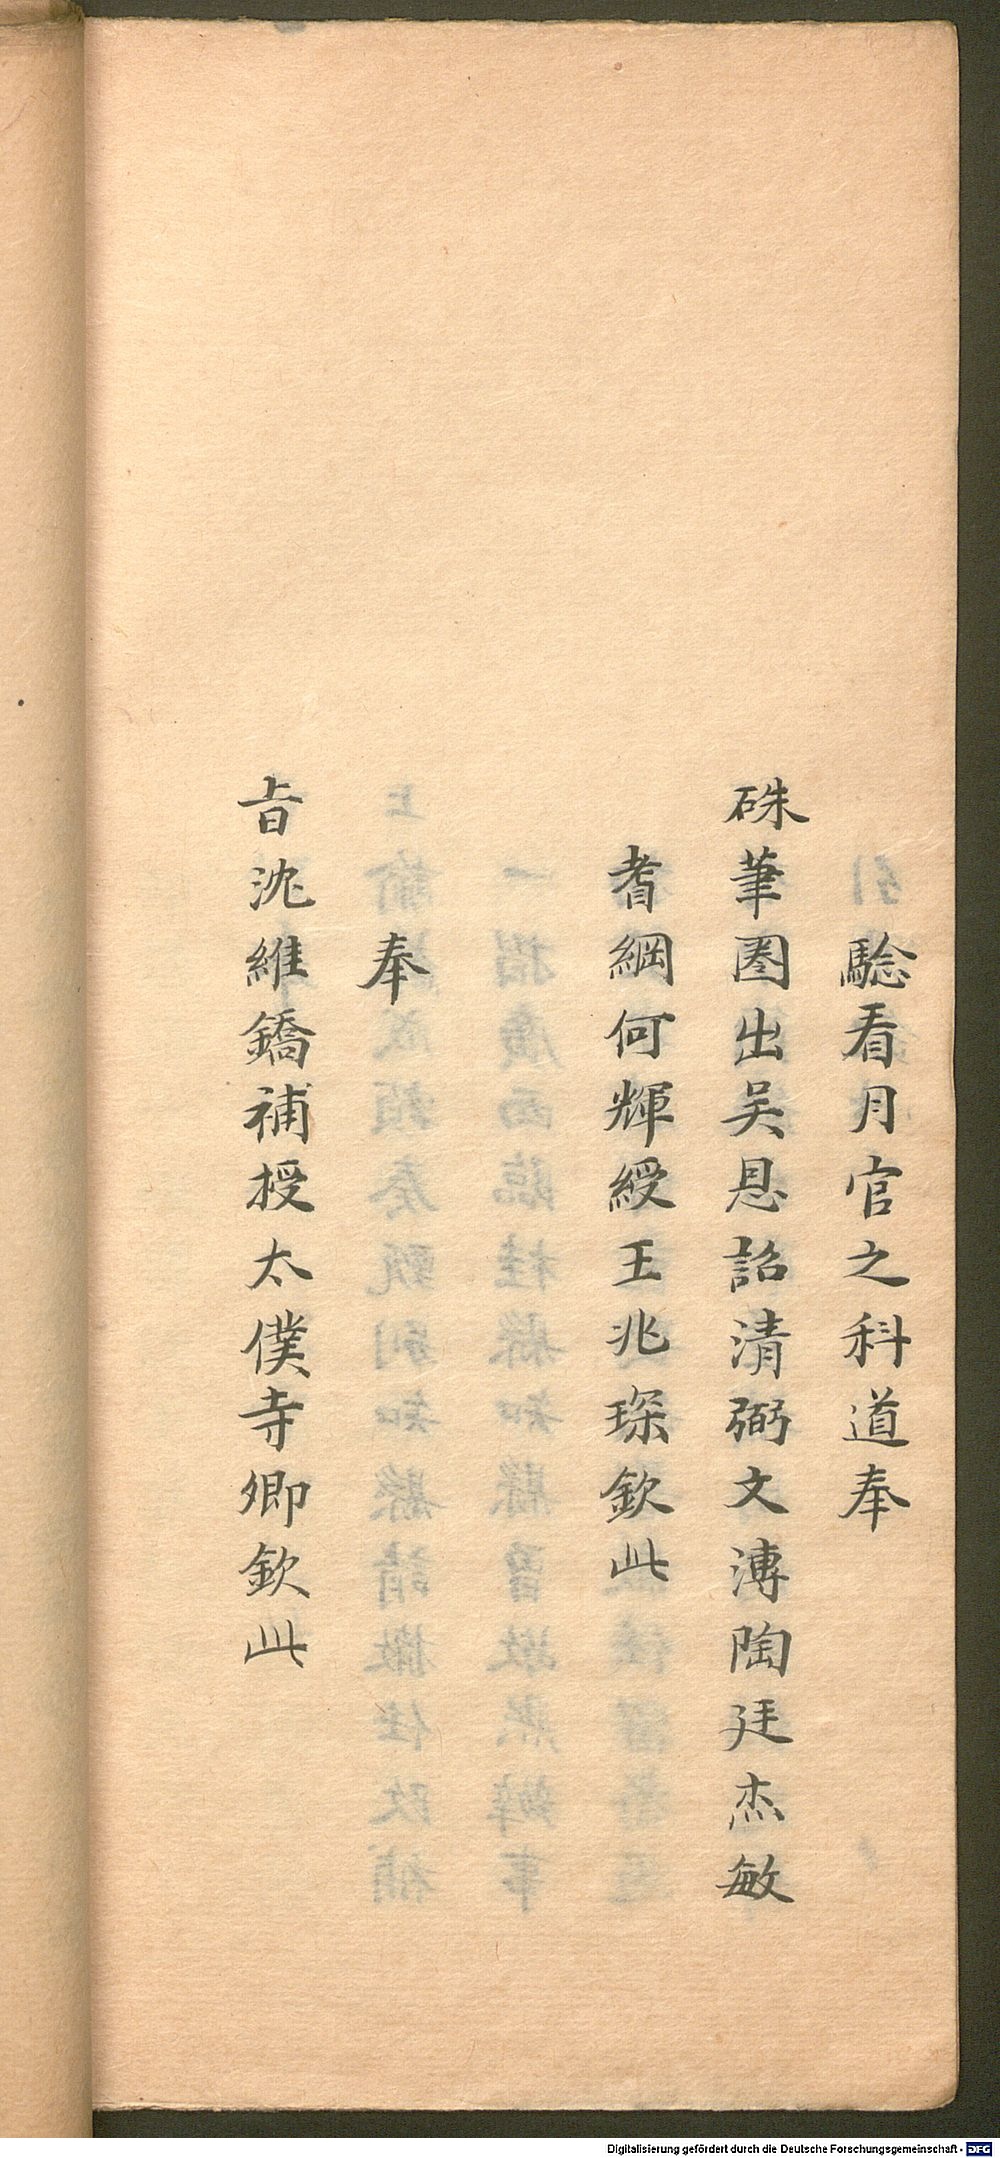 騐看月官之科道奉
硃筆圈出吴恳詔清弼文溥陶廷杰敏
耆綱何輝綬王兆琛欽此
奉
旨沈維鐈補授太僕寺卿欽此
Digitalisierung gefördert durch die Deutsche Forschungsgemeinschaft - DFG